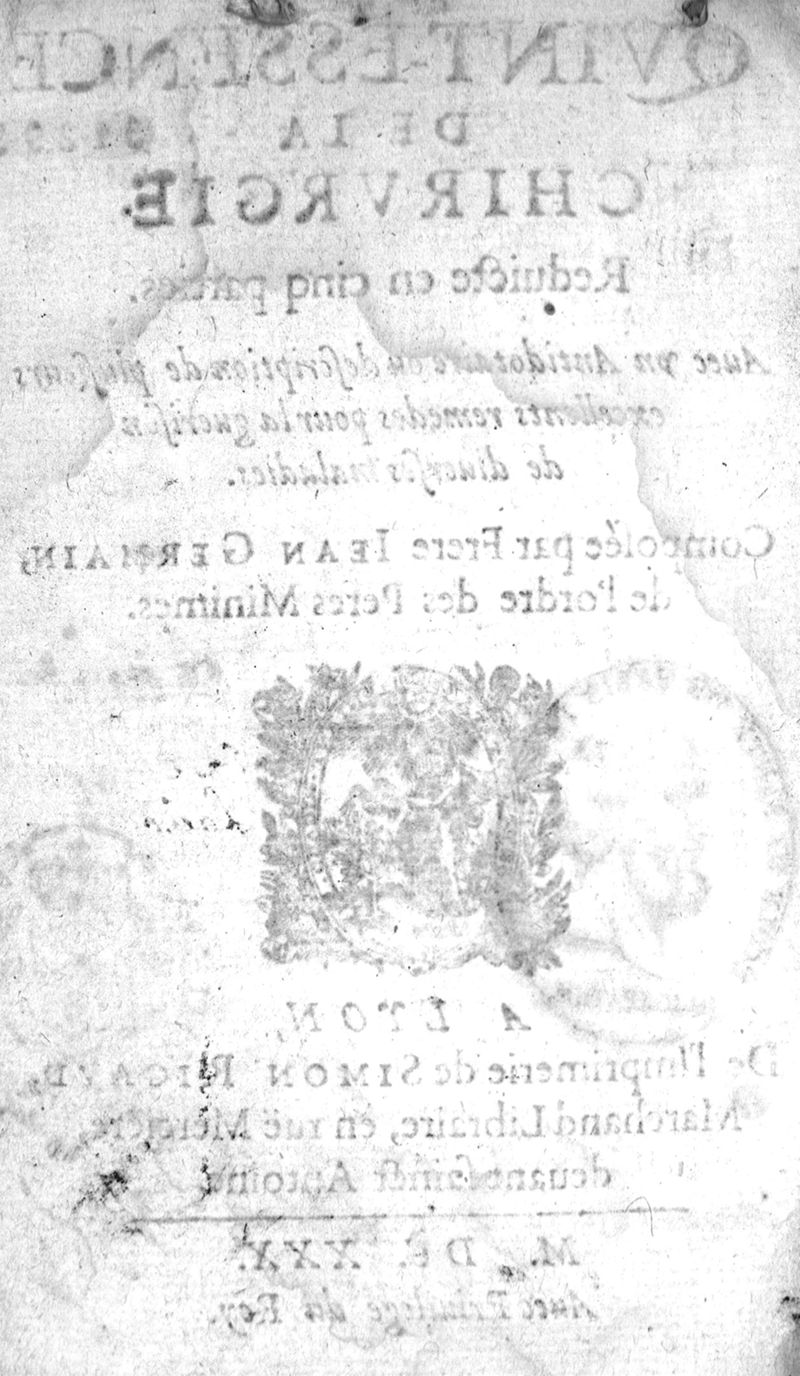 QVINT-ESSENCE
DE LA
CHIRVRGIE
Reduicte en cinq parties.
Auec vn Antidotaire ou deſcription de pluſieurs
excellents remedes pour la gueriſon
de diuerſes maladies.
Compoſée par Frere IEAN GERMAIN,
de l'ordre des Peres Minimes.
A LYON,
De l'Imprimerie de SIMON RIGAVD,
Marchand Libraire, en ruë Merciere,
deuant ſainct Antoine
M. DC. XXX.
Auec Priuilege du Roy.